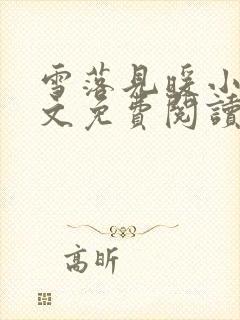 雪落見暖小
文免費閱讀
高昕